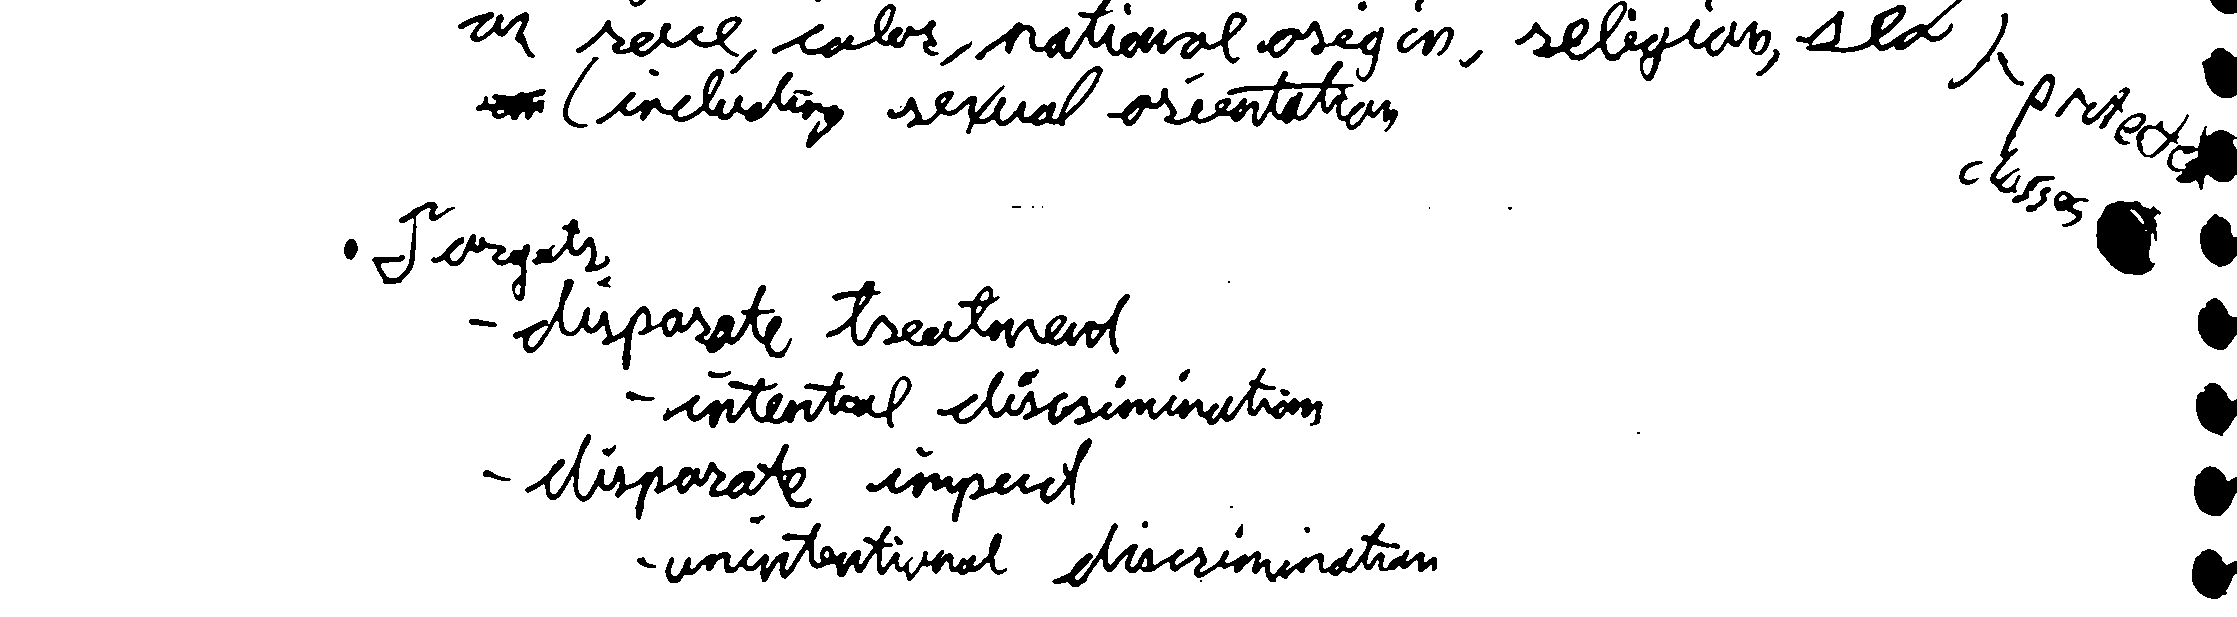 on race, color, national origin, religion, sex
(including sexual orientation
) - protected
classes
• Targets
- disparate treatment
- intentoal discrimination
- disparate impact
- unintentional discrimination